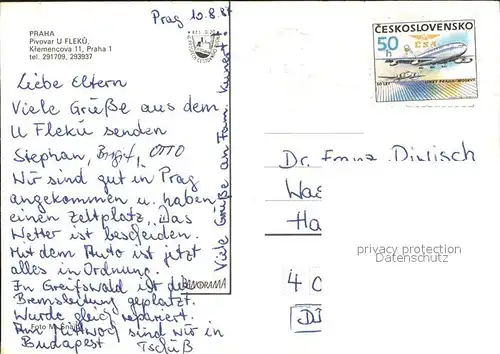 PRAHA
Pivovar U FLEKŮ,
Křemencova 11, Praha 1
tel. 291709, 293937
Prag 10.8.87
Liebe Eltern
Viele Grüße aus dem
U Flekú senden
Stephan, Birgit, OTTO
Wir sind gut in Prag
angekommen u. haben
einen Zeltplatz. Das
Wetter ist bescheiden.
Mit dem Auto ist jetzt
alles in Ordnung.
In Greifswald ist die
Bremsleitung geplatzt.
Wurde gleich repariert.
Am Mittwoch sind wir in
Budapest Tschüß
Viele Grüße an Fam. Kunert!
PANORAMA
Foto M.
ČESKOSLOVENSKO
50 h
ČSA
50 LET LINKY PRAHA-MOSKVA
Dr.
privacy protection
Datenschutz
4